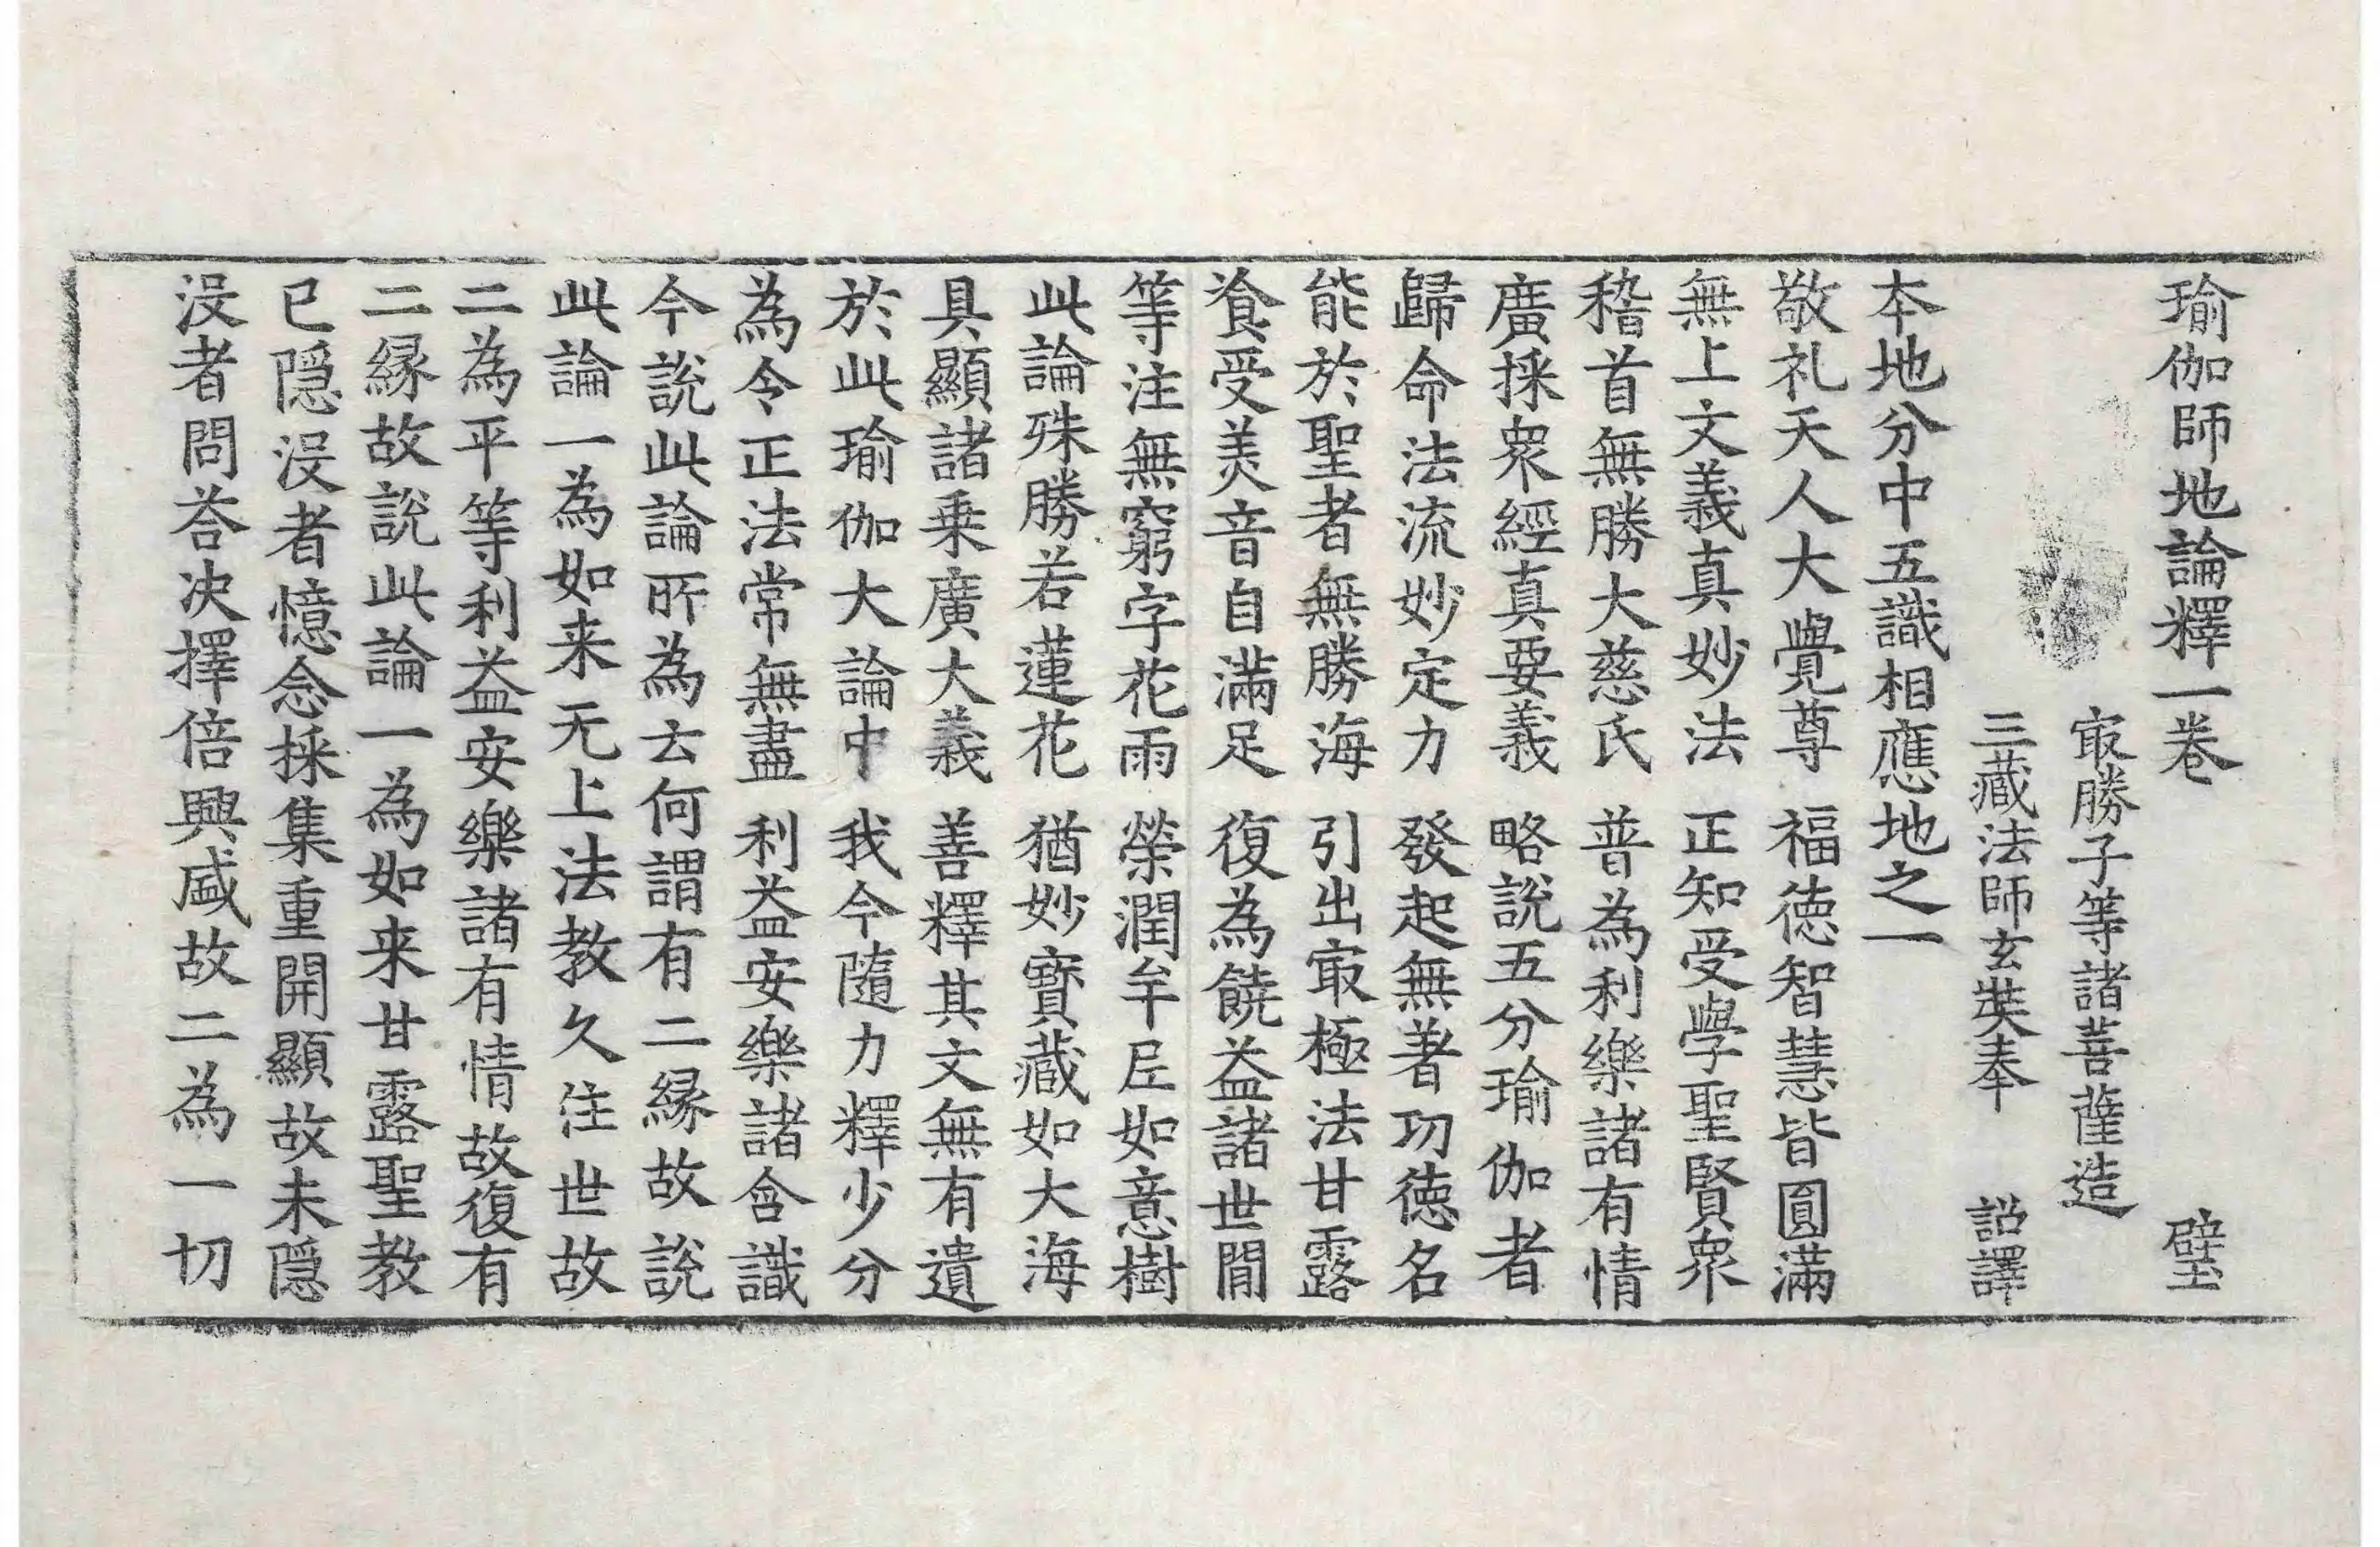 瑜伽師地論釋一卷　璧
㝡勝子等諸菩薩造
三藏法師玄奘奉　詔譯
本地分中五識相應地之一
敬礼天人大覺尊　福德智慧皆圓滿
無上文義真妙法　正知受學聖賢衆
稽首無勝大慈氏　普為利樂諸有情
廣採衆經真要義　略說五分瑜伽者
歸命法流妙定力　發起無著功德名
能於聖者無勝海　引出㝡極法甘露
飡受美音自滿足　復為饒益諸世間
等注無窮字花雨　榮潤牟尼如意樹
此論殊勝若蓮花　猶妙寶藏如大海
具顯諸乗廣大義　善釋其文無有遺
於此瑜伽大論中　我今隨力釋少分
為令正法常無盡　利益安樂諸含識
今說此論所為云何謂有二縁故說
此論一為如来无上法教久住世故
二為平等利益安樂諸有情故復有
二縁故說此論一為如来甘露聖教
已隠没者憶念採集重開顯故未隠
没者問荅决擇倍興盛故二為一切